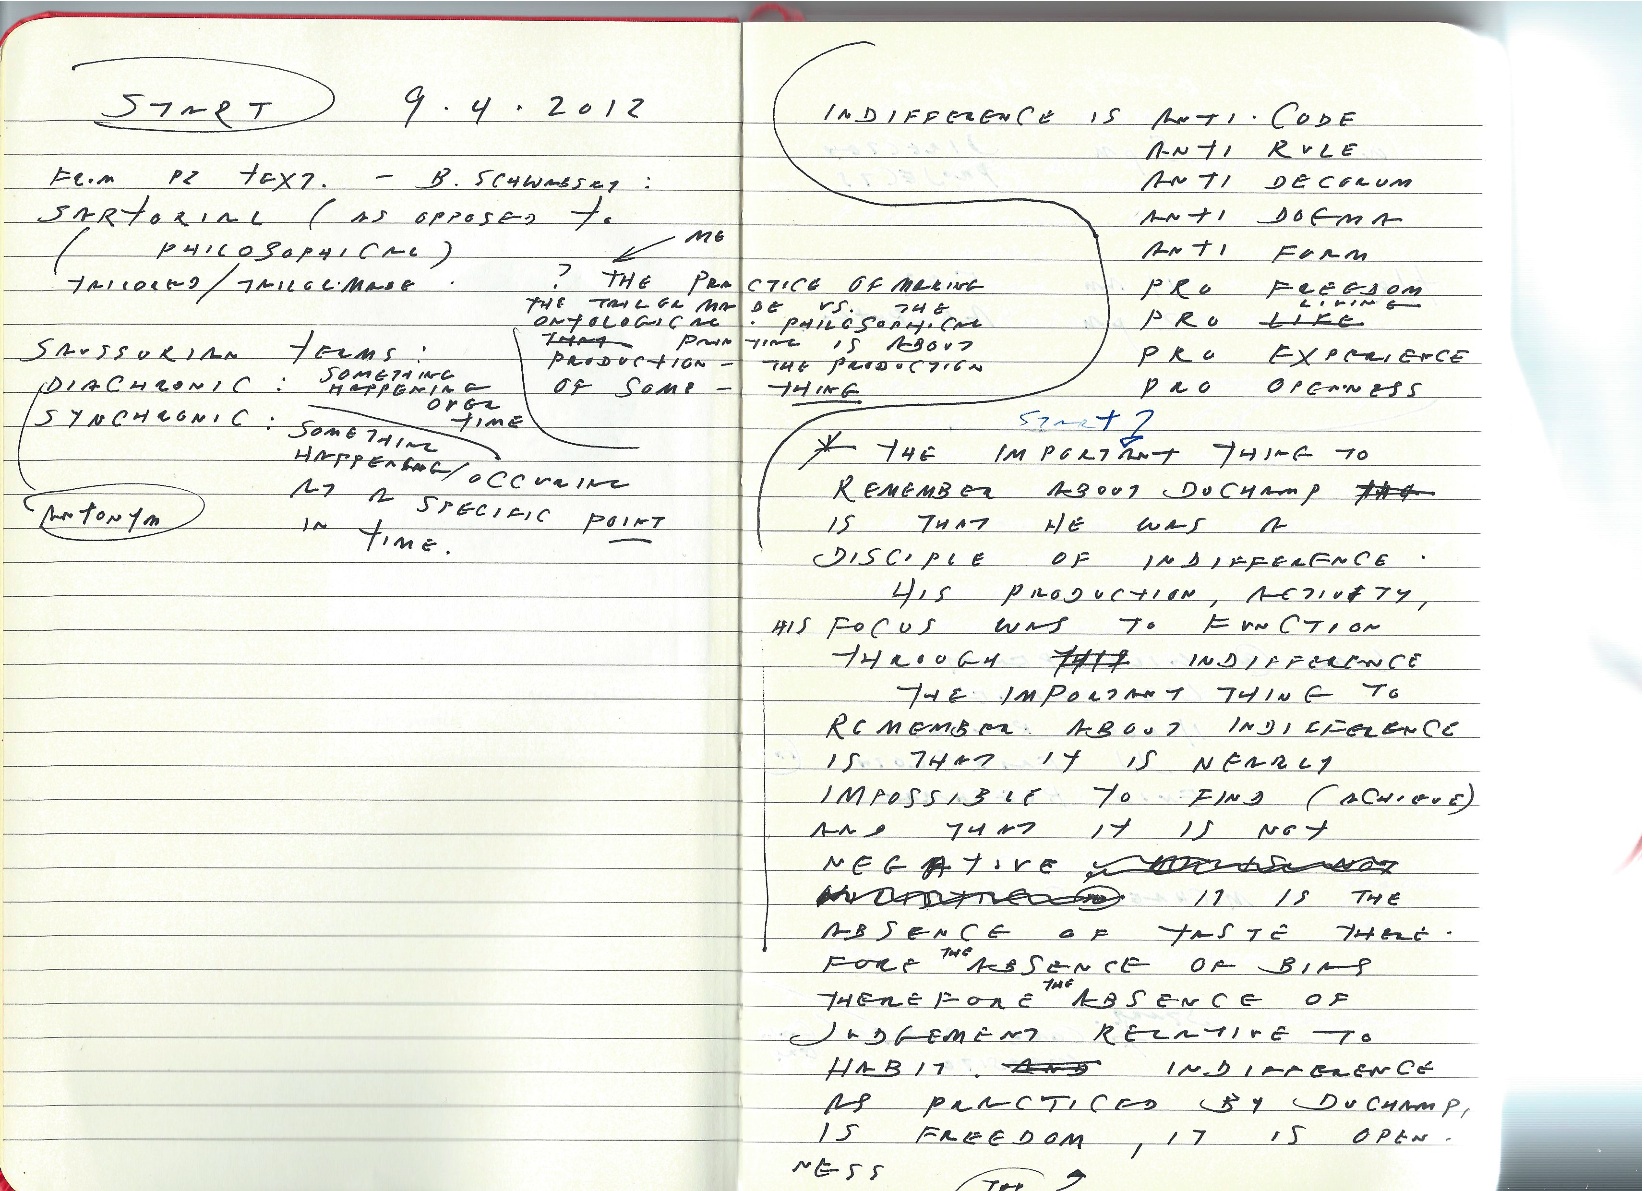 START 9.4.2012
FROM PZ TEXT. - B. SCHWABSKY:
SARTORIAL (AS OPPOSED TO
( PHILOSOPHICAL)
TAILORED/TAILOR.MADE.
ME
? THE PRACTICE OF MAKING
THE TAILOR MADE VS. THE
ONTOLOGICAL. PHILOSOPHICAL
PAINTING IS ABOUT
PRODUCTION - THE PRODUCTION
OF SOME - THING
SAUSSURIAN TERMS:
DIACHRONIC: SOMETHING
HAPPENING
OVER
TIME
SYNCHRONIC: SOMETHING
HAPPENING/OCCURING
AT A SPECIFIC POINT
IN TIME.
ANTONYM
INDIFFERENCE IS ANTI.CODE
ANTI RULE
ANTI DECORUM
ANTI DOGMA
ANTI FORM
PRO FREEDOM
LIVING
PRO LIKE
PRO EXPERIENCE
PRO OPENNESS
START?
* THE IMPORTANT THING TO
REMEMBER ABOUT DUCHAMP
IS THAT HE WAS A
DISCIPLE OF INDIFFERENCE.
HIS PRODUCTION, ACTIVITY,
HIS FOCUS WAS TO FUNCTION
THROUGH INDIFFERENCE
THE IMPORTANT THING TO
REMEMBER ABOUT INDIFFERENCE
IS THAT IT IS NEARLY
IMPOSSIBLE TO FIND (ACHIEVE)
AND THAT IT IS NOT
NEGATIVE
IT IS THE
ABSENCE OF TASTE THERE.
FORE THE ABSENCE OF BIAS
THEREFORE THE ABSENCE OF
JUDGEMENT RELATIVE TO
HABIT. AND INDIFFERENCE
AS PRACTICED BY DUCHAMP,
IS FREEDOM, IT IS OPEN-
NESS